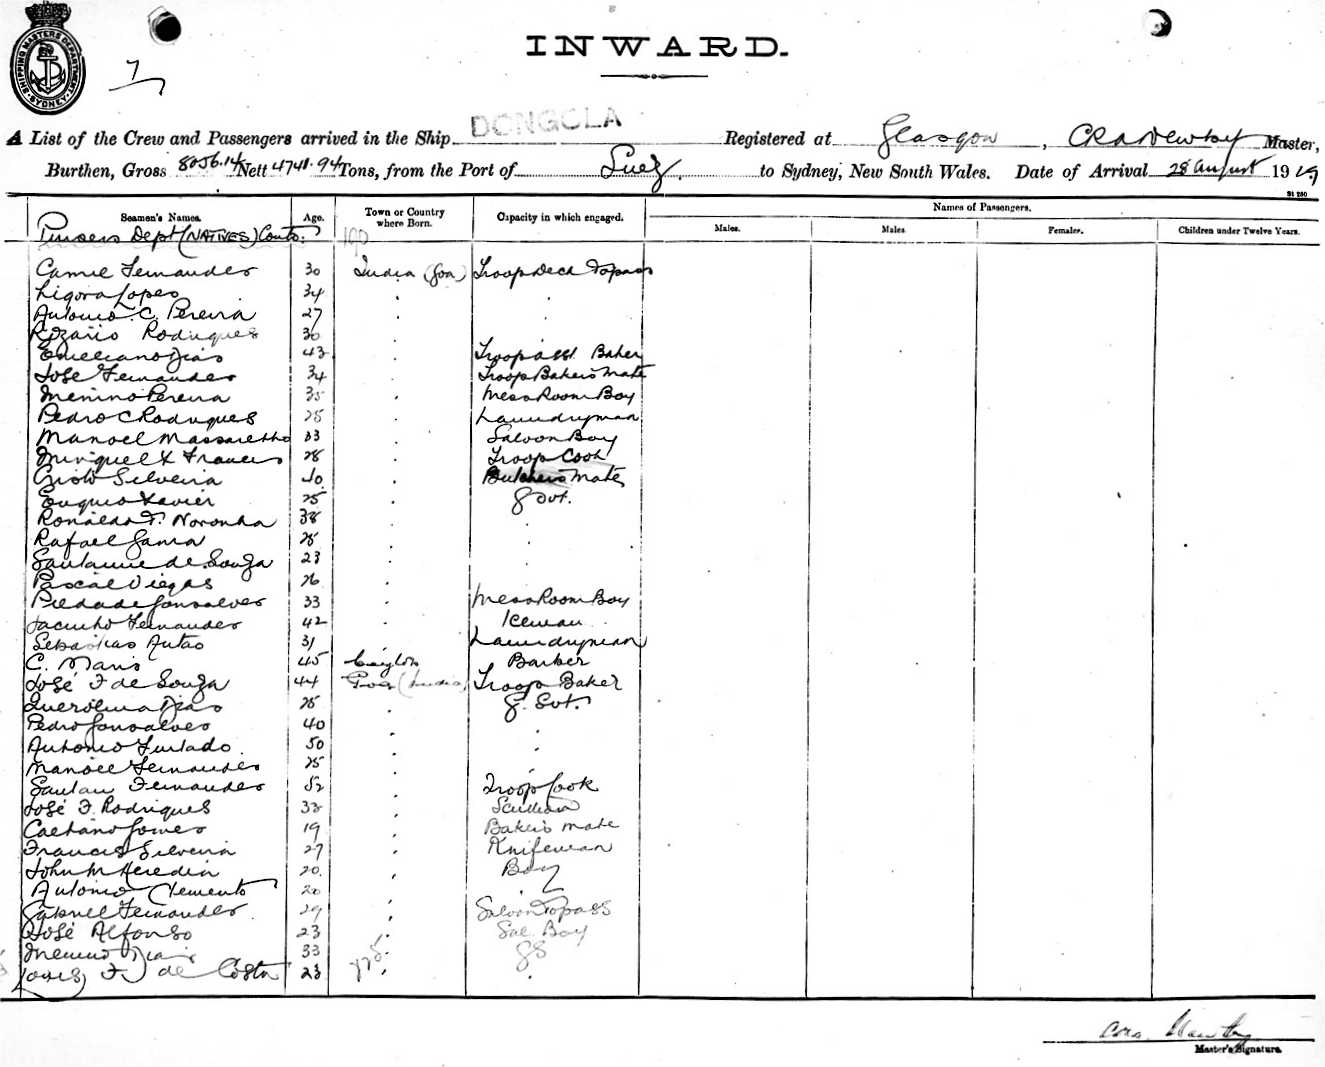 SHIPPING MASTERS DEPARTMENT SYDNEY
7
INWARD.
A List of the Crew and Passengers arrived in the Ship DONGOLA Registered at Glasgow, Master,
Burthen, Gross 8056.14 Nett 4741.94 Tons, from the Port of Suez. to Sydney, New South Wales. Date of Arrival 28 August 1919
Seamen's Names. Age. Town or Country where Born. Capacity in which engaged. Names of Passengers.
Males. Males. Females. Children under Twelve Years.
Pursers Dept (NATIVES) Contd.
Fernandes 30 India (Goa) Troop Deck Topass
Lopes 34 "
Antonio C. Pereira 27 "
Rozario Rodrigues 30
Emiliano Dias 43 Troop asst Baker
José Fernandes 34 " Troop Bakers Mate
Menino Pereira 35 " Mess Room Boy
Pedro C Rodrigues 25 " Laundryman
Manoel 33 " Saloon Boy
X Francis 28 " Troop Cook
Silveira 40 " Butchers Mate
Xavier 25 " G Svt.
Ronaldo F. Noronha 38 "
Rafael Gama 28 "
de Souza 23 "
Pascal Viegas 26 "
Piedade Gonsalves 33 " Mess Room Boy
Jacinho Fernandes 42 " Iceman
Sebastiao Antao 31 " Laundryman
C. Maris 45 Ceylon Barber
José F de Souza 44 Goa (India) Troop Baker
Dias 25 " G. Svt.
Pedro Gonsalves 40 "
Antonio Furtado. 50 "
Manoel Fernandes 25 "
Santan Fernandes 52 " Troop Cook
José F. Rodrigues 33 " Scullion
Caetano Gomes 19 " Bakers mate
Francis Silveira 27 " Knifeman
John M Heredia 20. " Boy
Antonio Clemento 20 "
Gabriel Fernandes. 29 " Saloon Topass
José Alfonso 23 " Sal. Boy
Menino Dias 33 " GS
F. de Costa 23 "
Master's Signature.